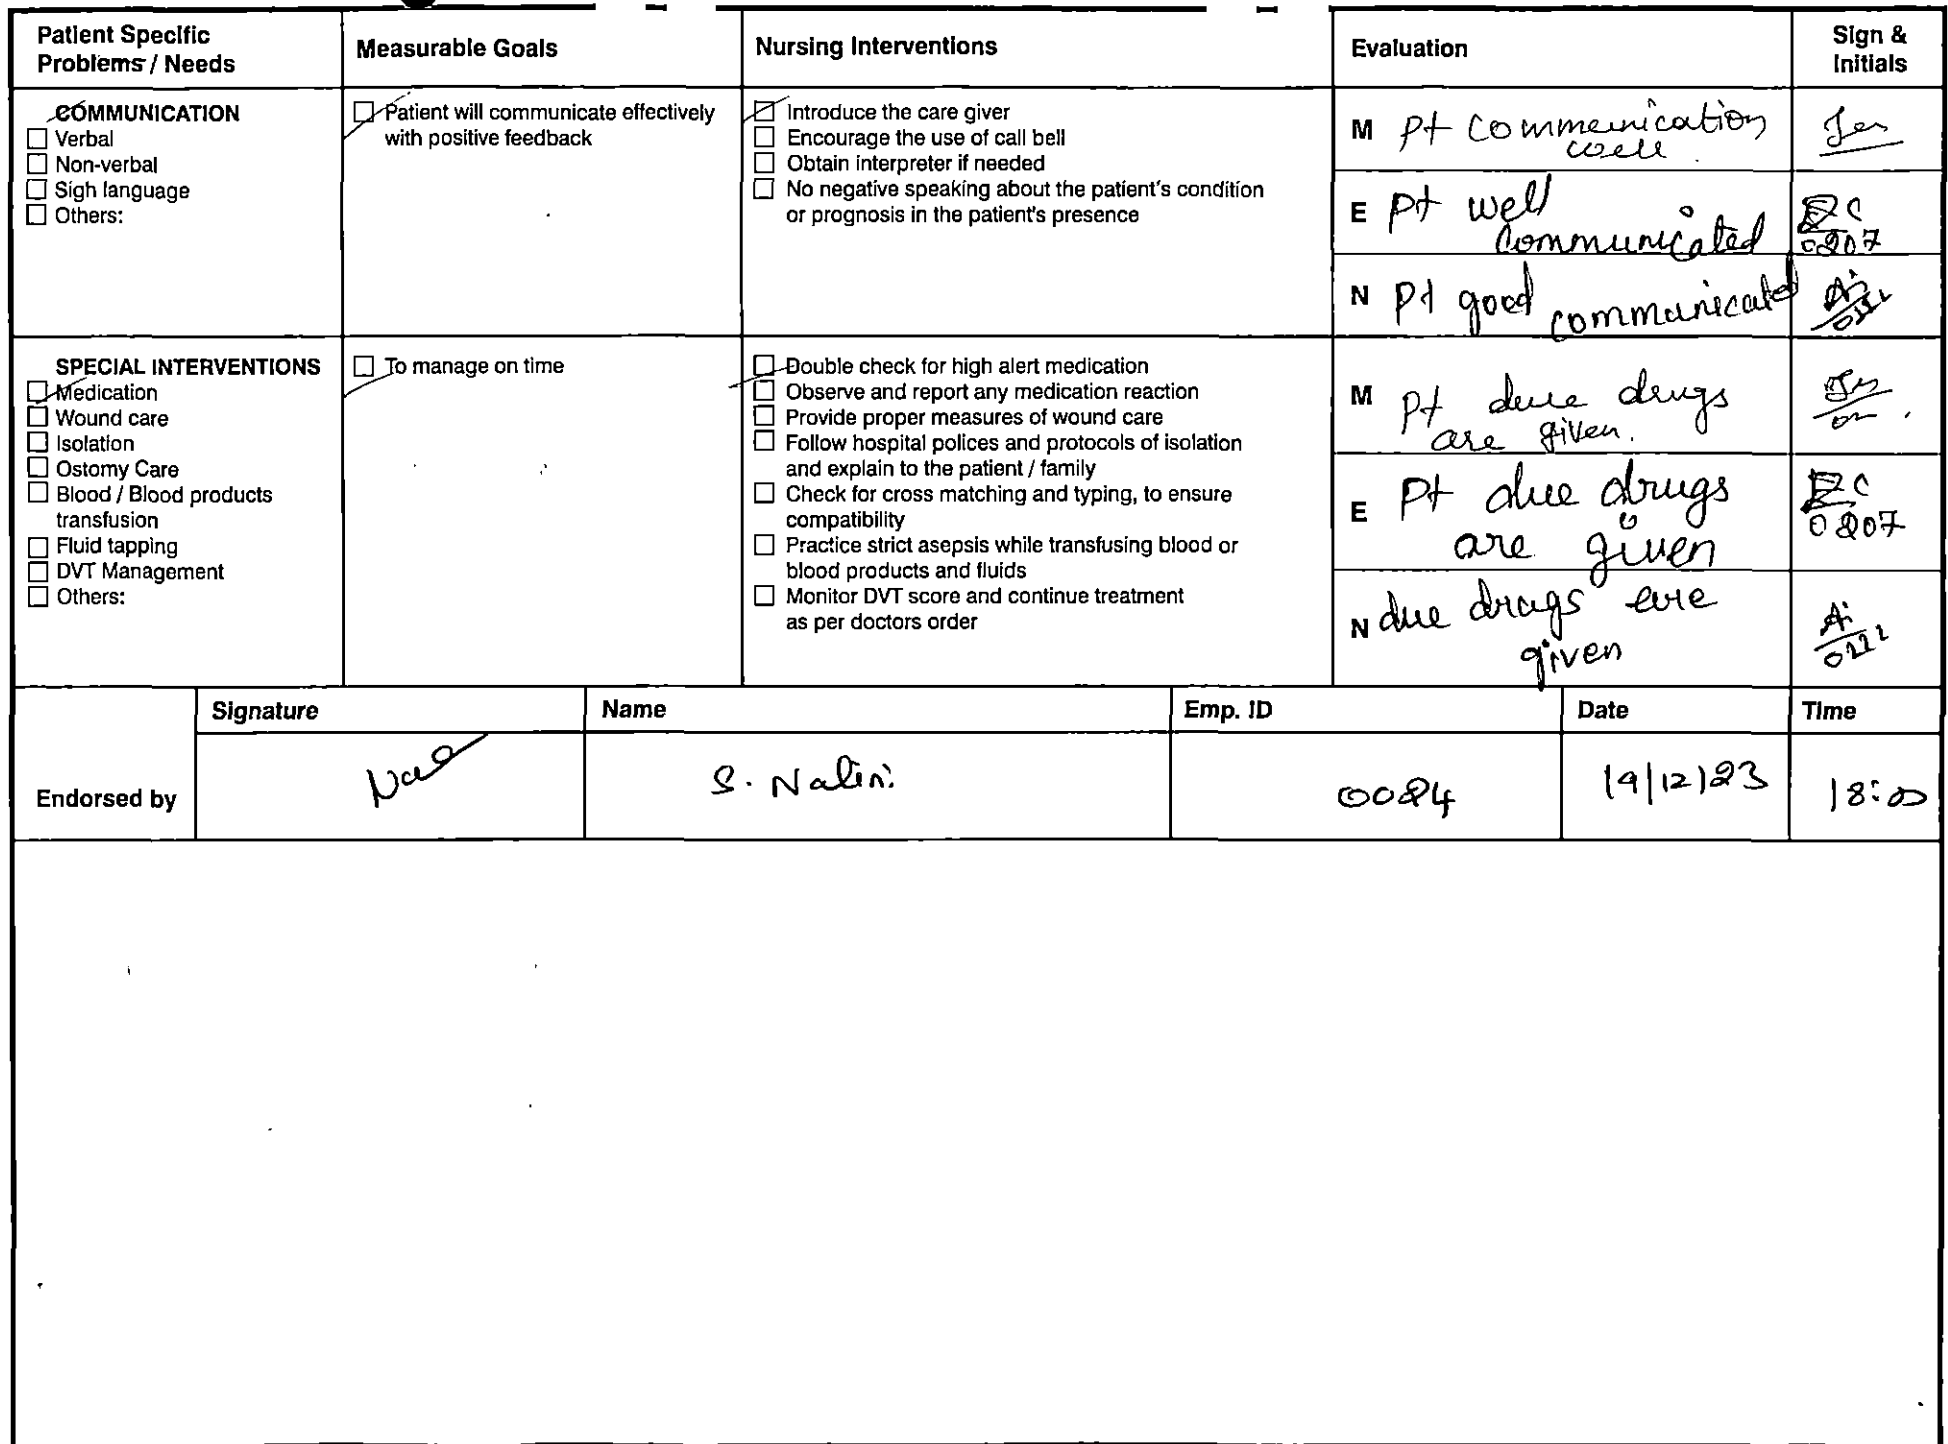 Patient Specific Problems / Needs
Measurable Goals
Nursing Interventions
Evaluation
Sign & Initials
COMMUNICATION
☐ Verbal
☐ Non-verbal
☐ Sigh language
☐ Others:
☑ Patient will communicate effectively
with positive feedback
☑ Introduce the care giver
☐ Encourage the use of call bell
☐ Obtain interpreter if needed
☐ No negative speaking about the patient's condition
or prognosis in the patient's presence
M pt communication
well.
E Pt well
communicated
0207
N Pt good communicated
SPECIAL INTERVENTIONS
☑ Medication
☐ Wound care
☐ Isolation
☐ Ostomy Care
☐ Blood / Blood products
transfusion
☐ Fluid tapping
☐ DVT Management
☐ Others:
☑ To manage on time
☑ Double check for high alert medication
☐ Observe and report any medication reaction
☐ Provide proper measures of wound care
☐ Follow hospital polices and protocols of isolation
and explain to the patient / family
☐ Check for cross matching and typing, to ensure
compatibility
☐ Practice strict asepsis while transfusing blood or
blood products and fluids
☐ Monitor DVT score and continue treatment
as per doctors order
M pt due drugs
are given.
E Pt due drugs
are given
0207
N due drugs are
given
Signature
Name
Emp. ID
Date
Time
Endorsed by
S. Nalini
0084
19/12/23
18:00